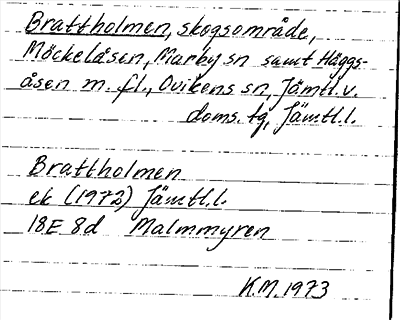 Brattholmen, skogsområde,
Möckelåsen, Marby sn samt Häggs-
åsen m. fl., Ovikens sn, Jämtl. v.
doms. tg, Jämtl. l.
Brattholmen
ek (1972) Jämtl. l.
18E 8d Malmmyren
K.M. 1973